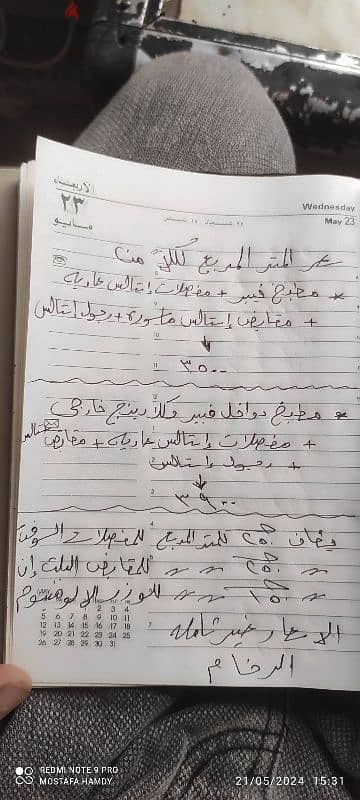 الأربعاء
٢٣
مايو
Wednesday
May 23
المتر المربع لكلاً من
* مطبخ فيبر + مفصلات إستالس عادية
+ مقابض إستالس ماسورة + رجول إستالس
٣٥٠٠
* مطبخ دواخل فيبر وكلادينج خارجى
+ مفصلات إستالس عادية + مقابض إستالس
+ رجول إستالس
٣٩٠٠
يضاف ٢٥٠ ج للمتر المربع للمفصلات السوفت
〃 ٢٥٠ ج 〃 〃 للمقابض البلت إن
〃 ١٥٠ ج 〃 〃 للوزر الالومنيوم
الاسعار غير شاملة
الرخام
1 2 3 4
5 6 7 8 9 10 11
12 13 14 15 16 17 18
19 20 21 22 23 24 25
26 27 28 29 30 31
REDMI NOTE 9 PRO
MOSTAFA HAMDY
21/05/2024 15:31